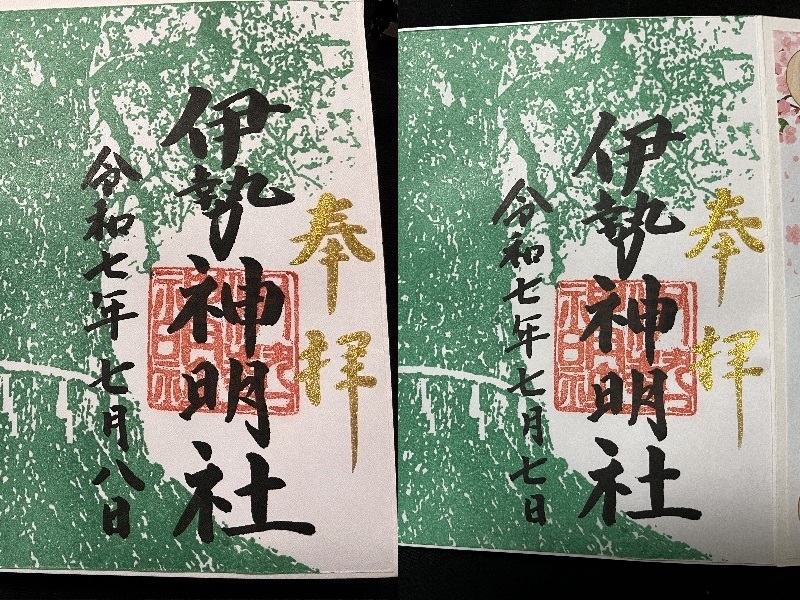 奉拝
伊勢神明社
令和七年七月八日
奉拝
伊勢神明社
令和七年七月七日